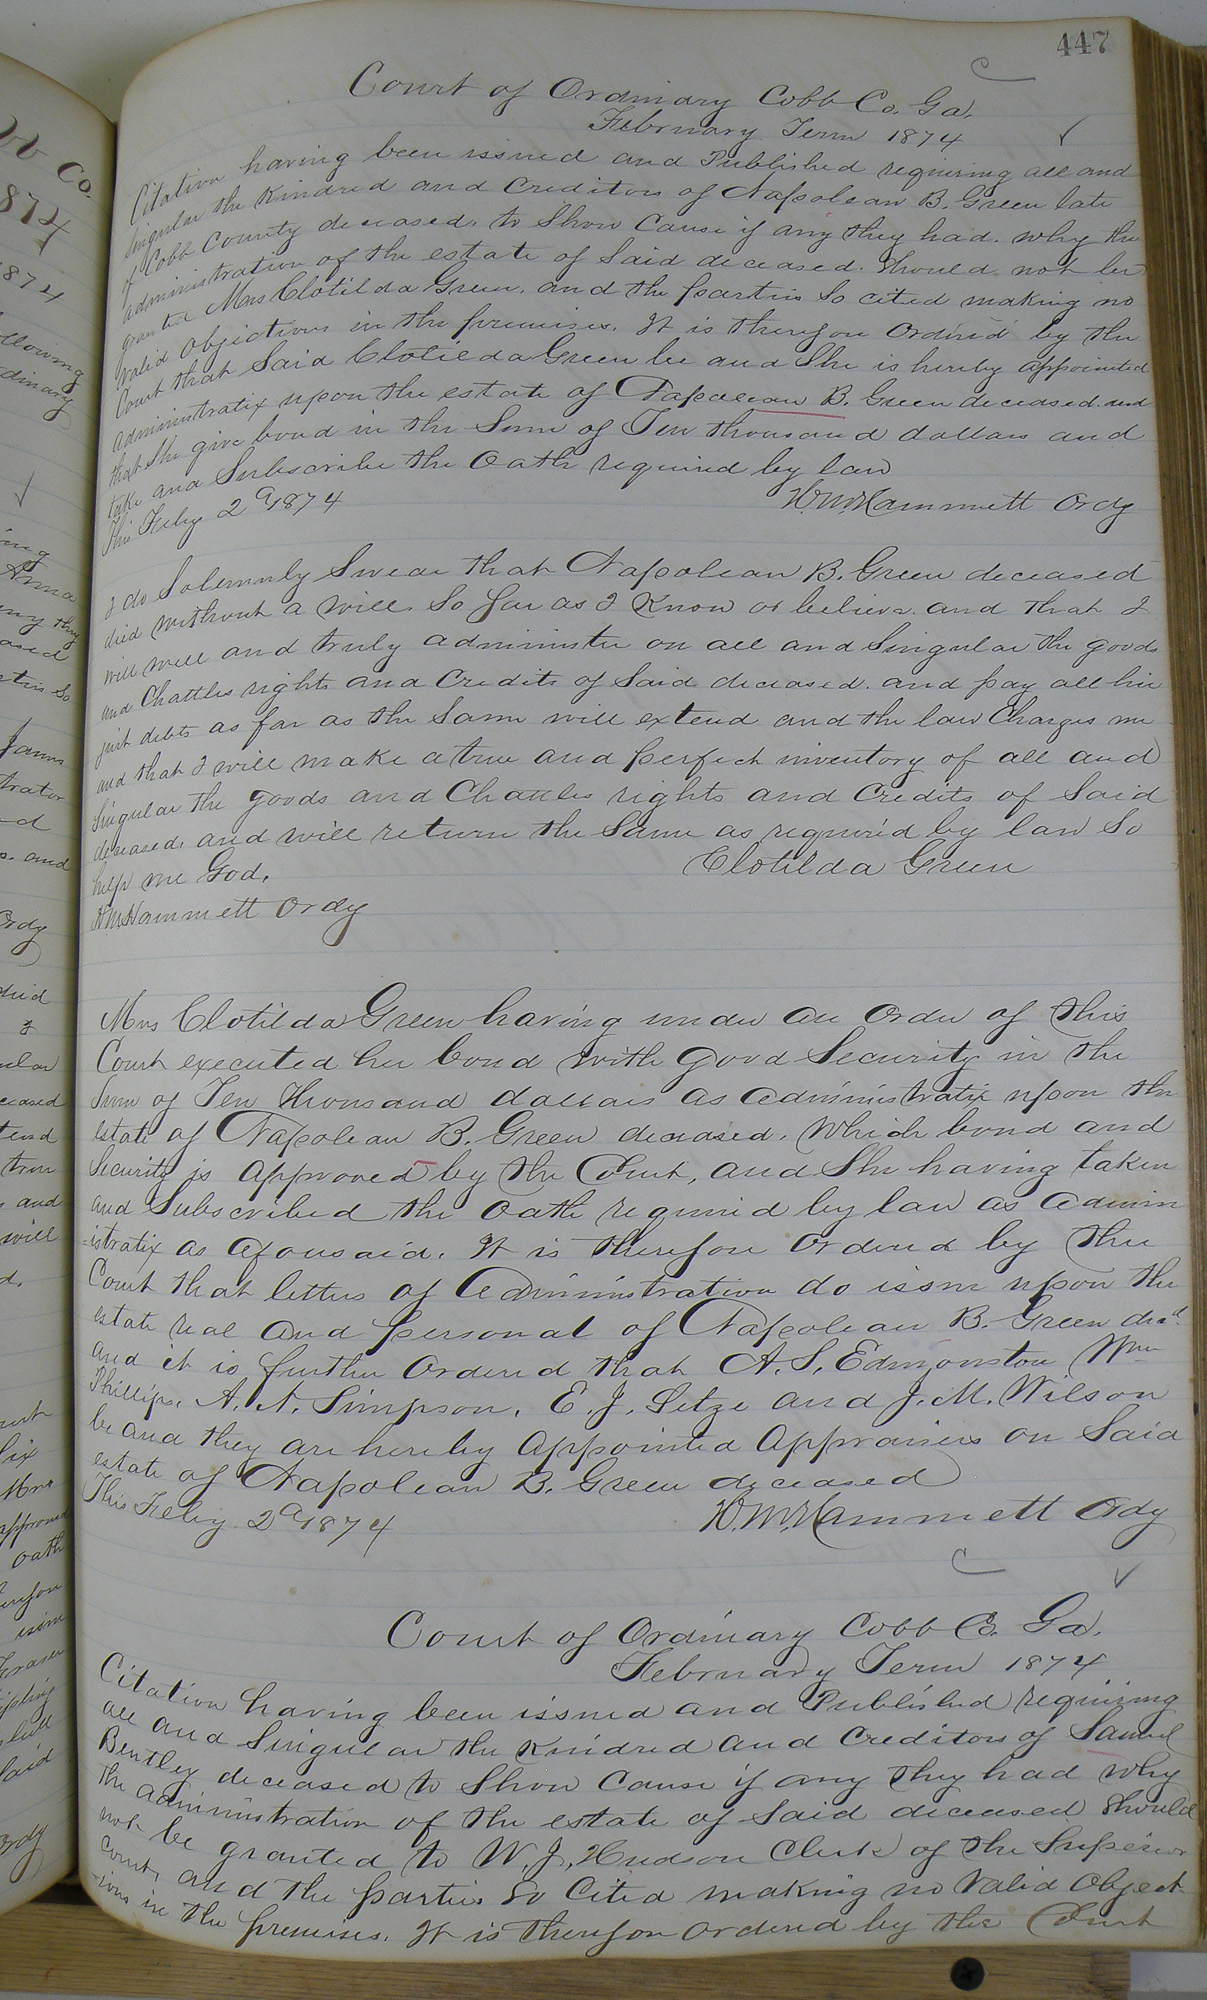 447
Court of Ordinary Cobb Co. Ga.
February Term 1874
Citation having been issued and Published requiring all and
singular the Kindred and Creditors of Napolean B. Green late
of Cobb County deceased. to Show Cause if any they had. why the
administration of the estate of Said deceased. Should not be
granted Mrs Clotilda Green. and the parties So cited making no
valid objections in the premises. It is therefore Ordered by the
Court that Said Clotilda Green be and She is hereby appointed
administratix upon the estate of Napolean B. Green deceased and
that She give bond in the Sum of Ten thousand dollars and
take and Subscribe the Oath required by law
This Feby 2d 1874
H. M. Hammett Ordy
I do Solemnly Swear that Napolean B. Green deceased
died without a will. So far as I Know or believe. and that I
will well and truly administer on all and Singular the goods
and Chattles rights and Credits of Said deceased. and pay all his
just debts as far as the Same will extend and the law Charges me
and that I will make a true and perfect inventory of all and
Singular the goods and Chattles rights and Credits of Said
deceased. and will return the Same as required by law So
help me God.
Clotilda Green
H. M. Hammett Ordy
Mrs Clotilda Green having under an Order of this
Court executed her bond with good Security in the
Sum of Ten Thousand dollars as administratix upon the
estate of Napolean B. Green deceased. Which bond and
Security is approved by the Court, and She having taken
and Subscribed the Oath required by law as admin
-istratix as aforesaid. It is therefore Ordered by the
Court that letters of Administration do issue upon the
estate real and personal of Napolean B. Green decd.
and it is further Ordered that A. S. Edmonston Wm
Phillips. A. N. Simpson. E. J. Setze and J. M. Wilson
be and they are hereby appointed Appraisers on Said
estate of Napolean B. Green deceased
This Feby 2d 1874
H. M. Hammett Ordy
Court of Ordinary Cobb Co. Ga.
February Term 1874
Citation having been issued and Published requiring
all and Singular the Kindred and Creditors of Samuel
Bently deceased to Show Cause if any they had why
the administration of the estate of Said deceased Should
not be granted to W. J. Hudson Clerk of the Superior
Court, and the parties So Cited making no Valid Object
-ions in the premises. It is therefore ordered by the Court